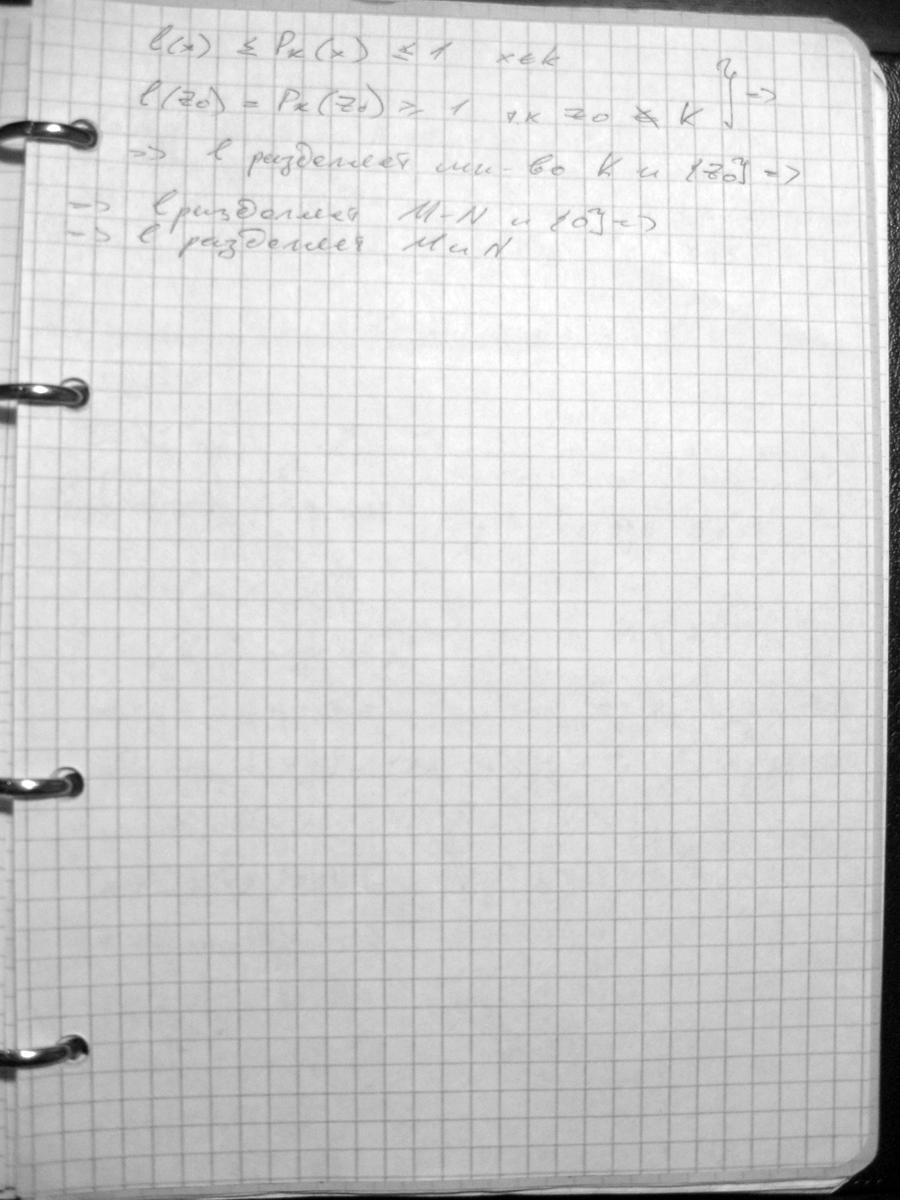 l(x) ≤ Pк(x) ≤ 1 x ∈ k
l(z₀) = Pк(z₀) ≥ 1 тк z₀ ∉ K } =>
=> l разделяет мн-во K и {z₀} =>
=> l разделяет M-N и {0} =>
=> l разделяет M и N